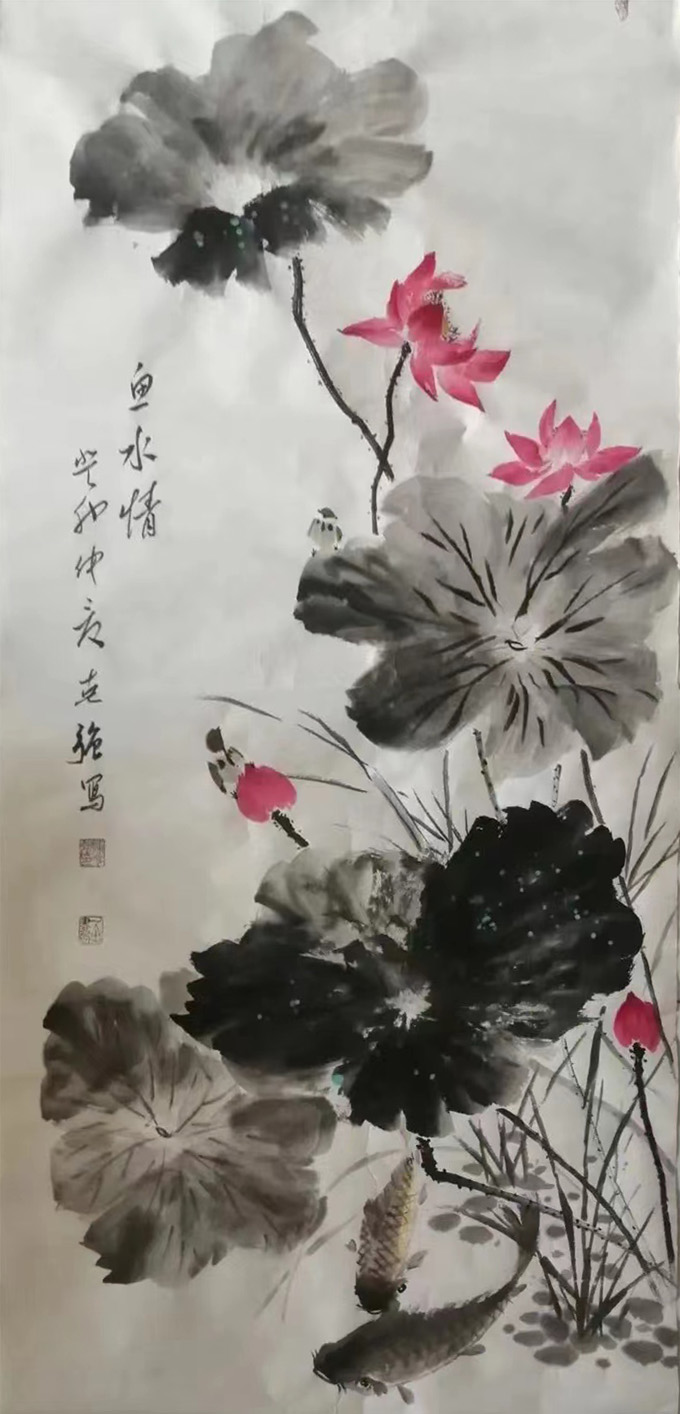 鱼水情
癸卯仲夏克强写